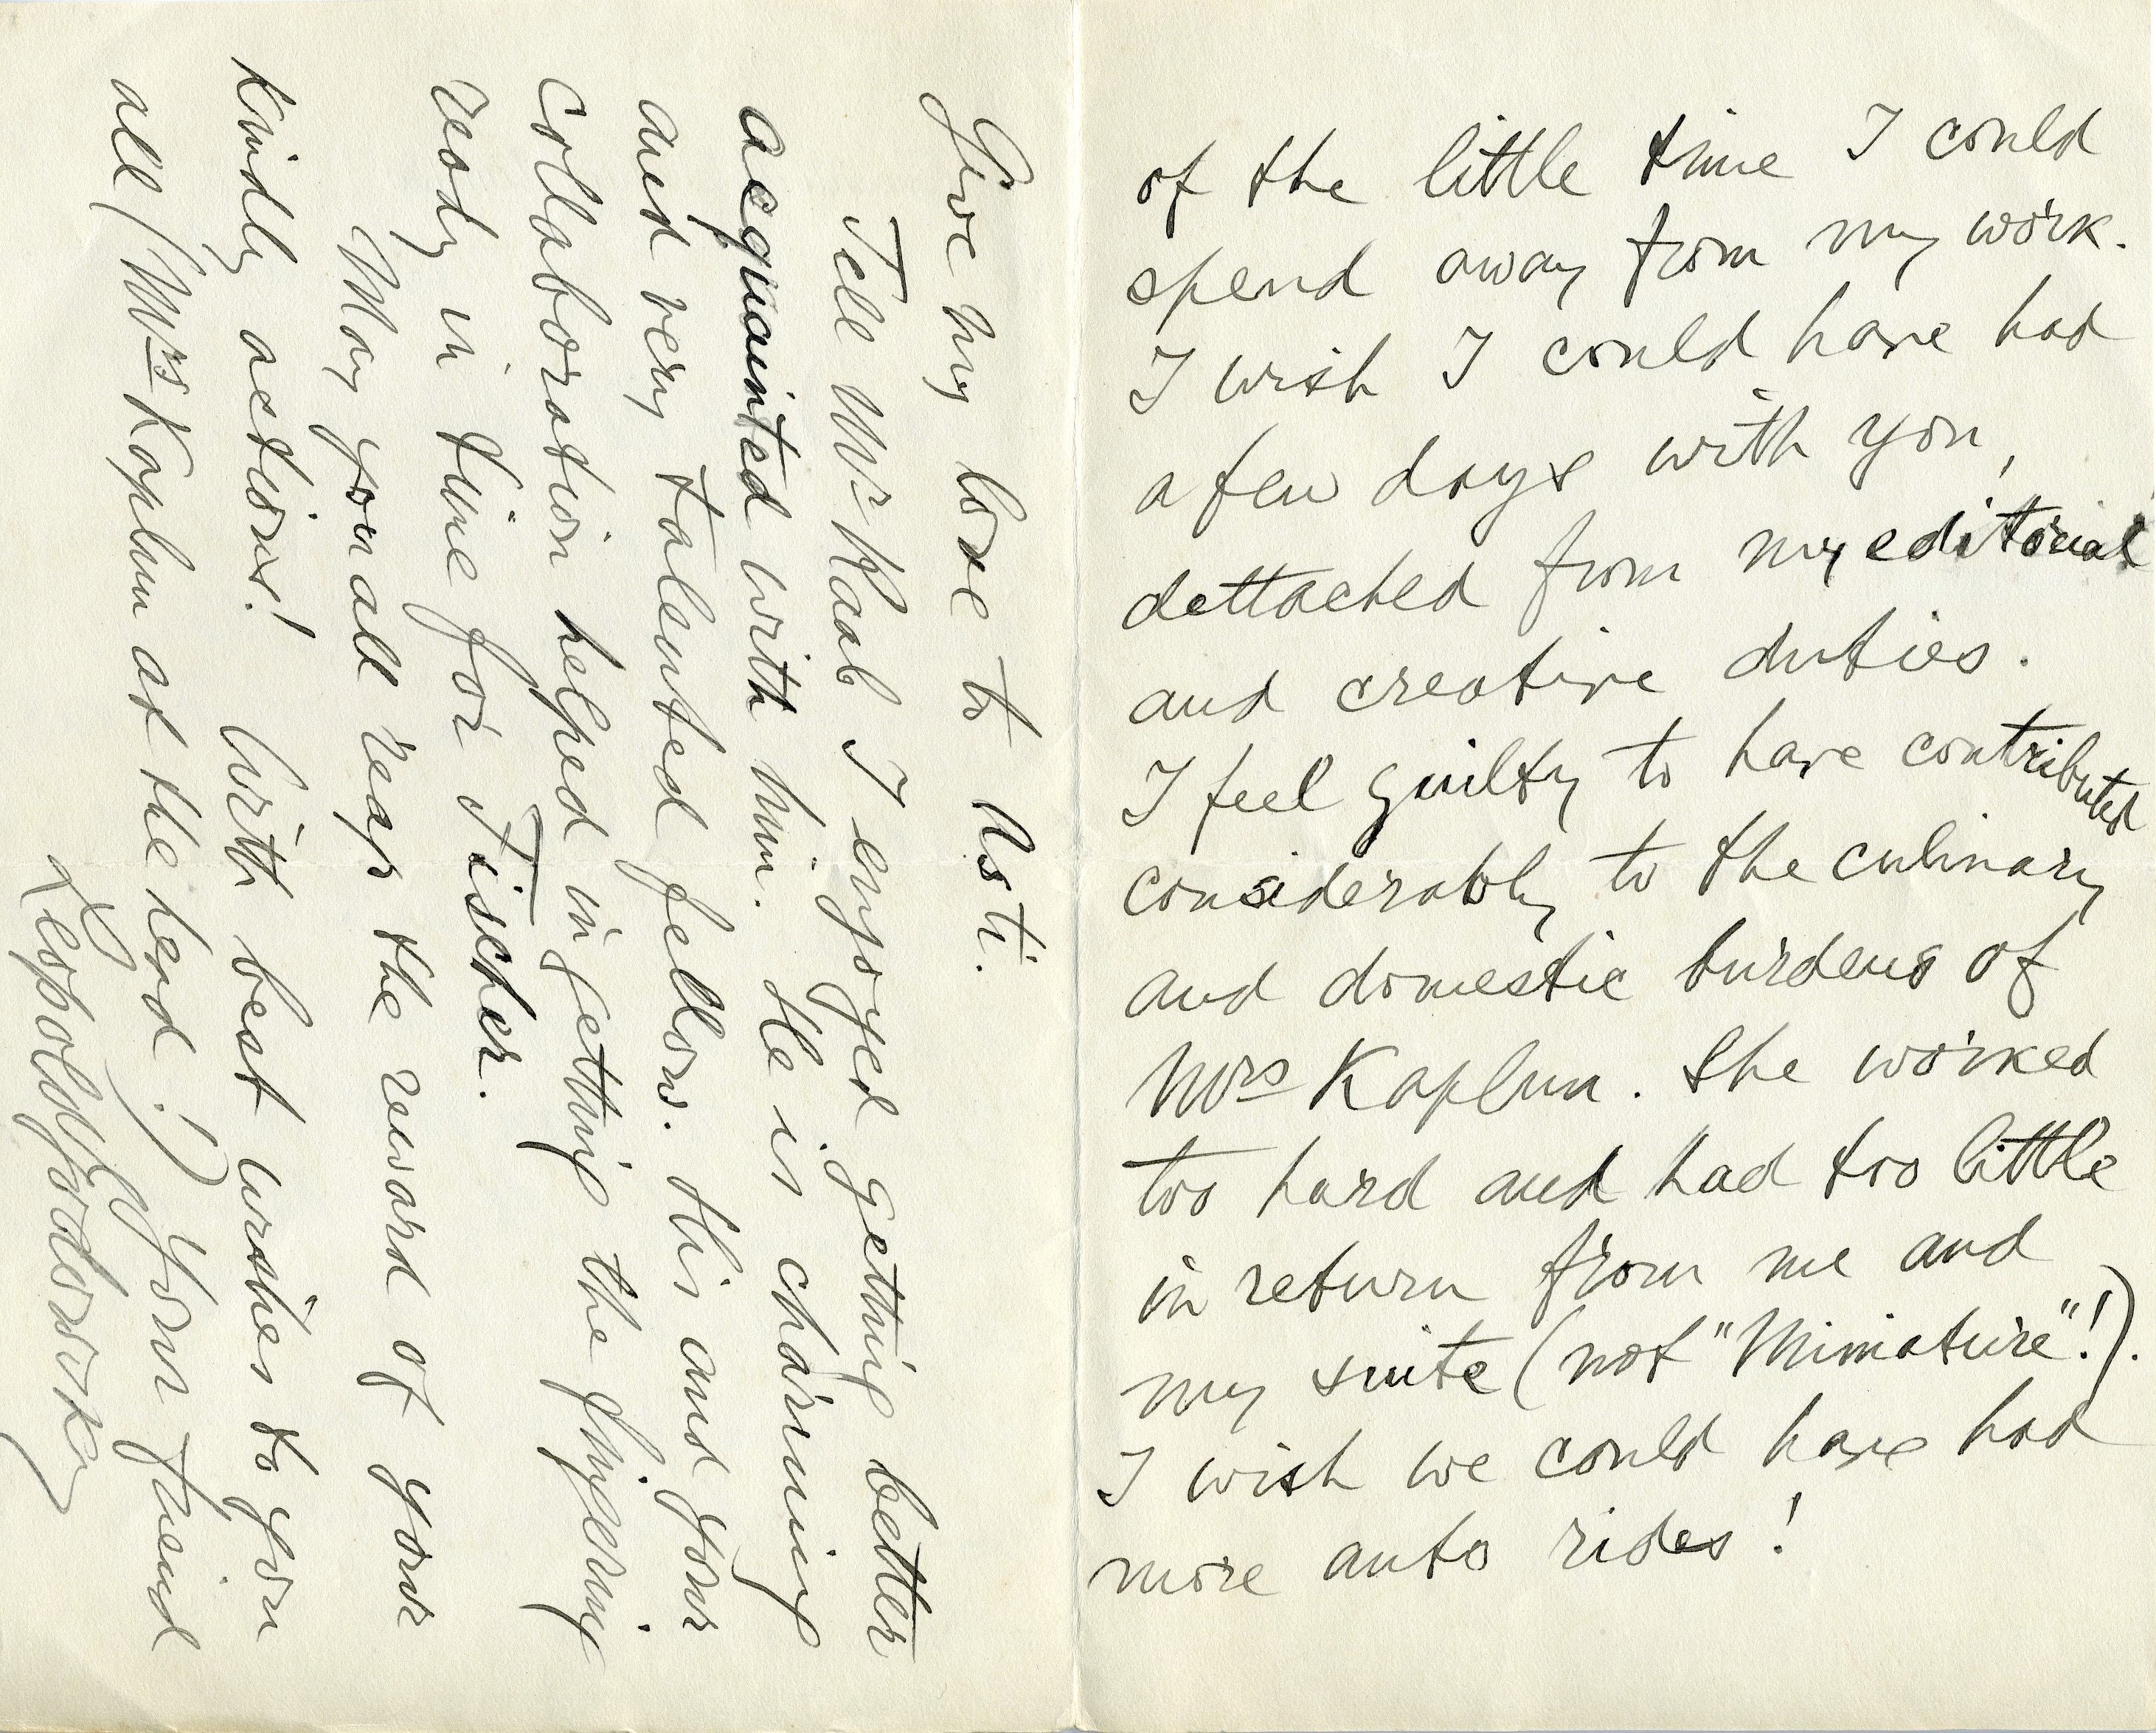 of the little time I could
spend away from my work.
I wish I could have had
a few days with you,
dettached from my editorial
and creative duties.
I feel guilty to have contributed
considerably to the culinary
and domestic burdens of
Mrs Kaplun. She worked
too hard and had too little
in return from me and
my suite (not "Miniature"!).
I wish we could have had
more auto rides!
Give my love to Asti.
Tell Mr Raab I enjoyed getting better
acquainted with him. He is charming
and very talented fellow. His and your
collaboration helped in getting the fingering
ready in time for Fischer.
May you all reap the reward of your
kindly actions! With best wishes to you
all (Mrs Kaplun at the head!) Your friend
Leopold Godowsky